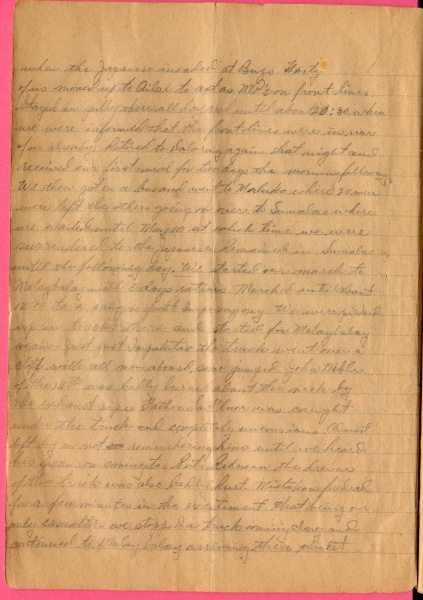 when the Japanese invaded at Bugo. Forty
of us moved up to Alae to act as MP's on front lines
Stayed in gully there all day and until about 20:30 when
we were informed that the front lines were in rear
of us already. Retired to again that night and
received our first meal for two days the morning following.
We then got on a bus and went to Maluko where 20 men
were left the others going on over to Sumilao where
we waited until May 10 at which time we were
surrendered to the Japanese. Remained in Sumilao
until the following day. We started our march to
Malaybalay with 3 days rations. Marched until about
12:00 to a We were picked
up in trucks there and started for Malaybalay
again. Just past Impalutao the truck went over a
cliff with all men aboard, some jumped. John Noble
of the 14th was badly burned about the neck by
the exhaust pipe. Father was caught
under the truck and completely unconscious. Almost
left by us not remembering him until we heard
his groan on coming to. Pvt. Redmon the driver
of the truck was also badly hurt. Mistaken
for a few minutes in the excitement. That being our
only casualties we stopped a truck coming along and
continued to Malaybalay arriving there about